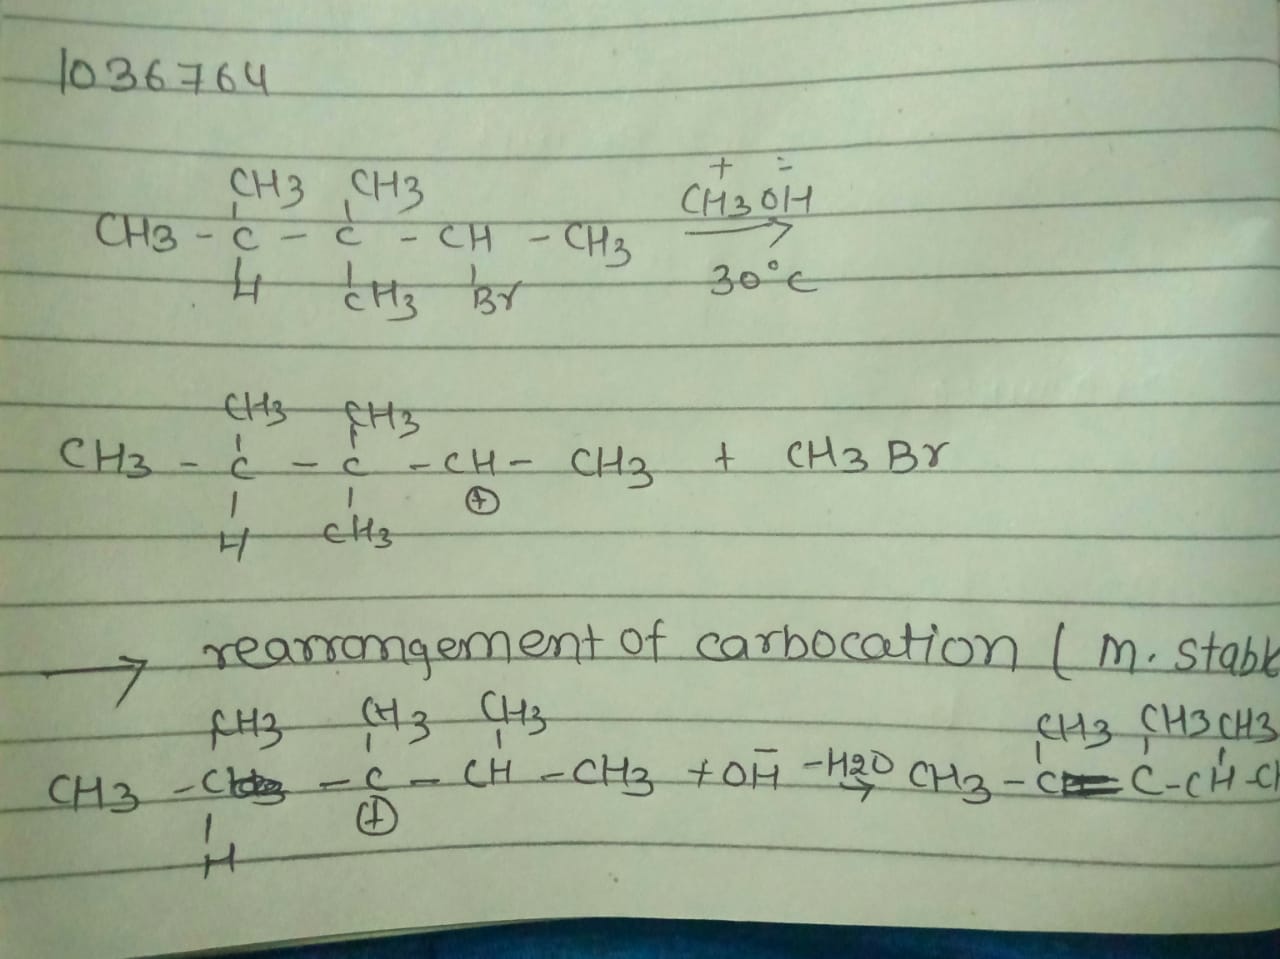 1036764
CH3 CH3
CH3 - C - C - CH - CH3
H CH3 Br
+ -
CH3OH
30°C
CH3 CH3
CH3 - C - C - CH - CH3 + CH3 Br
H CH3 ⊕
→ rearrangement of carbocation ( m. stabl
CH3 CH3 CH3
CH3 - C - C - CH - CH3 + OH̄ -H2O → CH3 - C = C - CH - CH
H ⊕
CH3 CH3 CH3